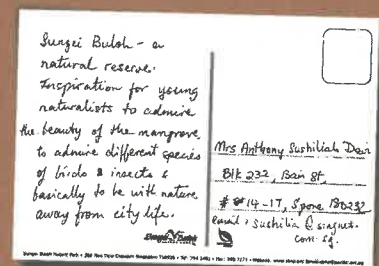 Sungei Buloh - a
natural reserve.
Inspiration for young
naturalists to admire
the beauty of the mangrove,
to admire different species
of birds & insects &
basically to be with nature
away from city life.
Mrs Anthony Sushiliah Dair
Blk 232, Bain St,
#14-17, S'pore 180232
email: sushilia@signet.
com.sg.